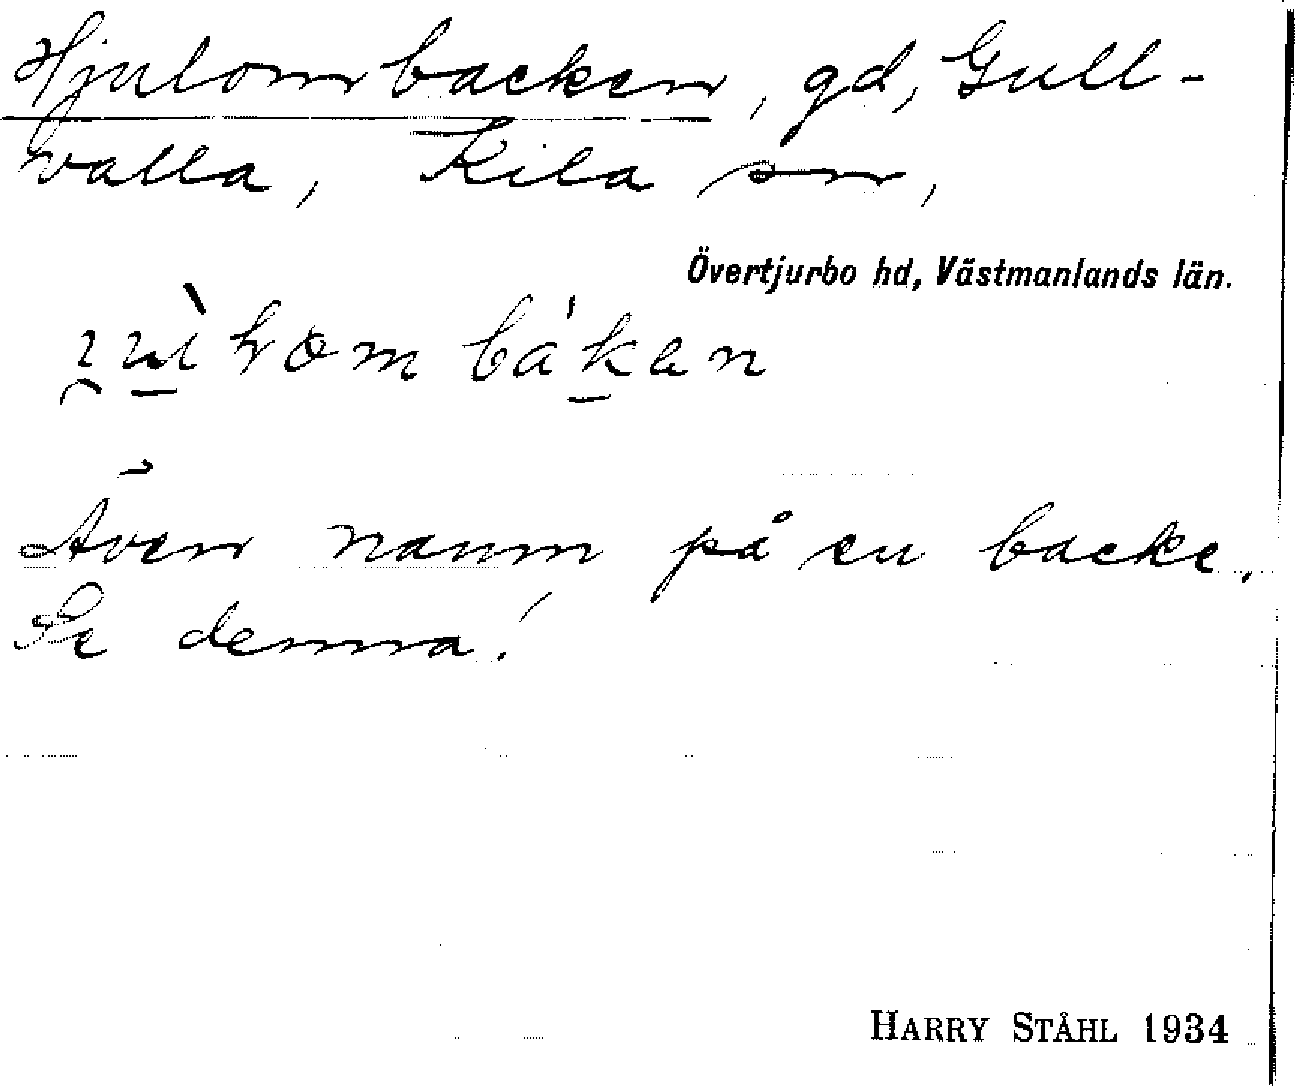 Hjulombacken, gd, Gull-
valla, Kila sn,
Övertjurbo hd, Västmanlands län.
Även namn på en backe.
Se denna!
HARRY STÅHL 1934